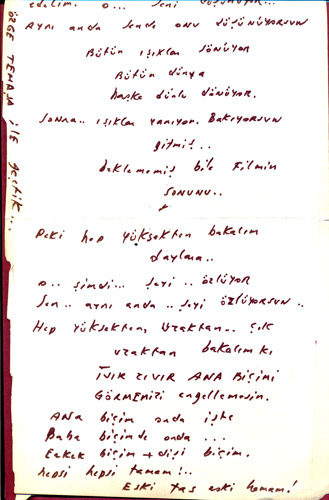 edelim. o... seni düşünüyor...
Aynı anda sende onu düşünüyorsun
Bütün ışıklar sönüyor
Bütün dünya
başka dönüyor.
Sonra.. ışıklar yanıyor. Bakıyorsun
gitmiş..
beklememiş bile filmin
sonunu..
Peki hep yüksekten bakalım
olaylara..
o.. şimdi... şeyi.. özlüyor
Sen.. aynı anda.. şeyi özlüyorsun..
Hep yüksekten, uzaktan.. çok
uzaktan bakalım ki
TIVIR ZIVIR ANA Biçimi
Görmemizi engellemesin.
Ana biçim onda işte
Baba biçimde onda...
Erkek biçim + dişi biçim.
hepsi hepsi tamam!..
Eski tas eski hamam!
ÖZGE TEMAŞA İLE geçtik...